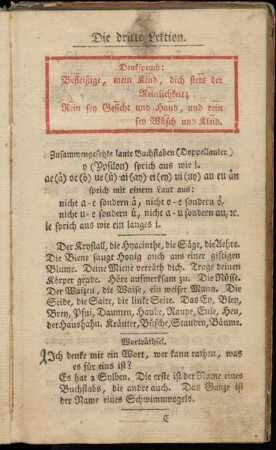 Die dritte Lektion.
Denkspruch:
Befleißige, mein Kind, dich stets der
Reinlichkeit;
Rein sey Gesicht und Hand, und rein
sey Wäsch und Kleid.
Zusammengesetzte laute Buchstaben (Doppellauter)
y (Ypsilon) sprich aus wie i.
ae (ä) oe (ö) ue (ü) ai (ay) ei (ey) ui (uy) au eu äu
sprich mit einem Laut aus:
nicht a-e sondern ä, nicht o-e sondern ö,
nicht u-e sondern ü, nicht a-u sondern au, ꝛc.
ie sprich aus wie ein langes i.
Der Krystall, die Hyacinthe, die Säge, die Aehre.
Die Biene saugt Honig auch aus einer giftigen
Blume. Deine Miene verräth dich. Trage deinen
Körper grade. Höre aufmerksam zu. Die Nüsse.
Der Waizen, die Waise, ein weiser Mann. Die
Seide, die Saite, die linke Seite. Das Ey, Bley,
Brey, Pfui, Daumen, Haube, Raupe, Eule, Heu,
der Haushahn. Kräuter, Büsche, Stauden, Bäume.
Worträthsel.
Ich denke mir ein Wort, wer kann rathen, was
es für eins ist?
Es hat 2 Sylben. Die erste ist der Name eines
Buchstabs, die andre auch. Das Ganze ist
der Name eines Schwimmvogels.
C